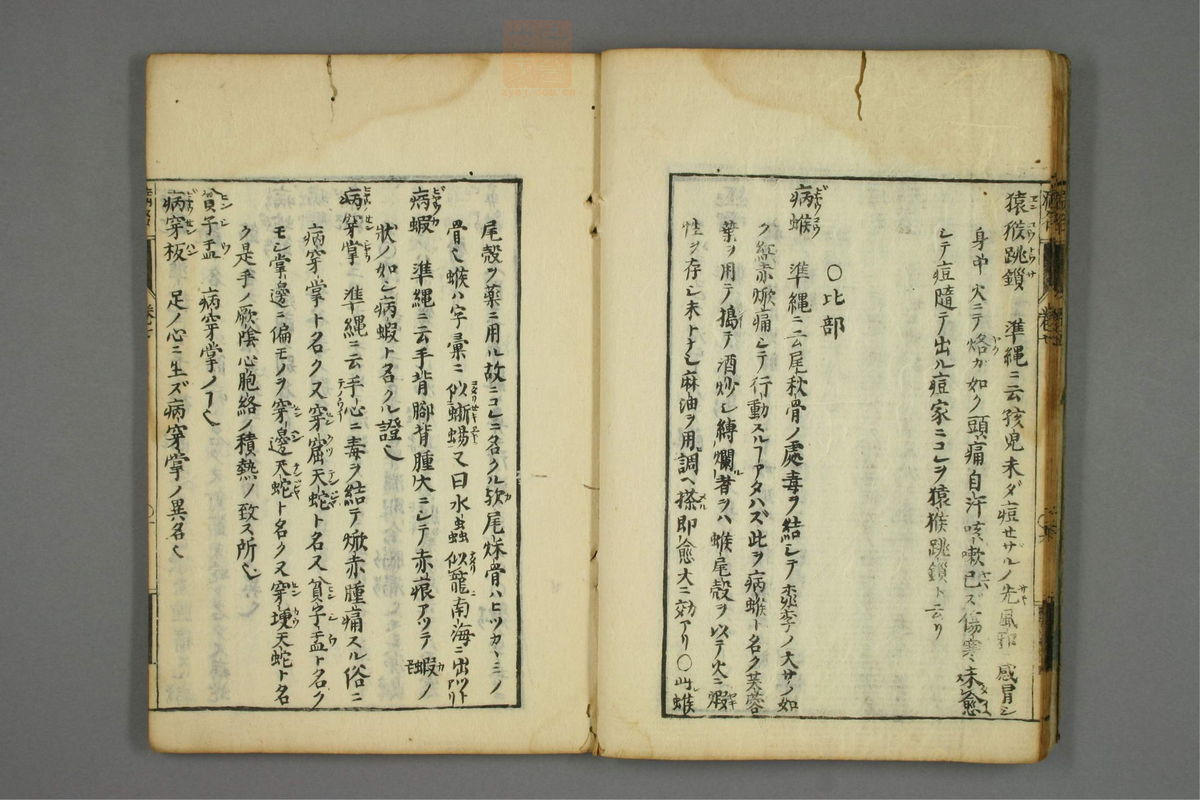 猿猴跳鎖 準縄ニ云孩兒未ダ痘セサルノ先風邪感冒シ
身中火ニテ烙ガ如ク頭痛自汗咳嗽已ス傷寒未愈
シテ痘隨テ出ル痘家ニコレヲ猿猴跳鎖ト云リ
〇比部
病蝬 準縄ニ云尾秋骨ノ處毒ヲ結シテ李ノ大サノ如
ク紅赤焮痛シテ行動スルヿアタハズ此ヲ病蝬ト名ク芙蓉
葉ヲ用テ搗テ酒炒シ縛爛者ヲハ蝬尾殻ヲ以テ火ニ煆
性ヲ存シ末トナシ麻油ヲ用調ヘ搽即愈大ニ効アリ〇此蝬
尾殻ヲ藥ニ用ル故ニコレニ名クル欤尾烌骨ハヒツカヽミノ
骨也蝬ハ字彙ニ似蜥蜴又曰水虫似龍南海ニ出ツトアリ
病蝦 準縄ニ云手背脚背腫大ニシテ赤痕アツテ蝦ノ
狀ノ如シ病蝦ト名クル證也
病穿掌 準縄ニ云手心ニ毒ヲ結テ焮赤腫痛スル俗ニ
病穿掌ト名クス穿窟天蛇ト名ス貧子盂ト名ク
モシ掌邊ニ偏モノヲ穿邊天蛇ト名クス穿埂天蛇ト名
ク是手ノ厥陰心胞絡ノ積熱ノ致ス所也
貧子盂 病穿掌ノヿ也
病穿板 足ノ心ニ生ズ病穿掌ノ異名也